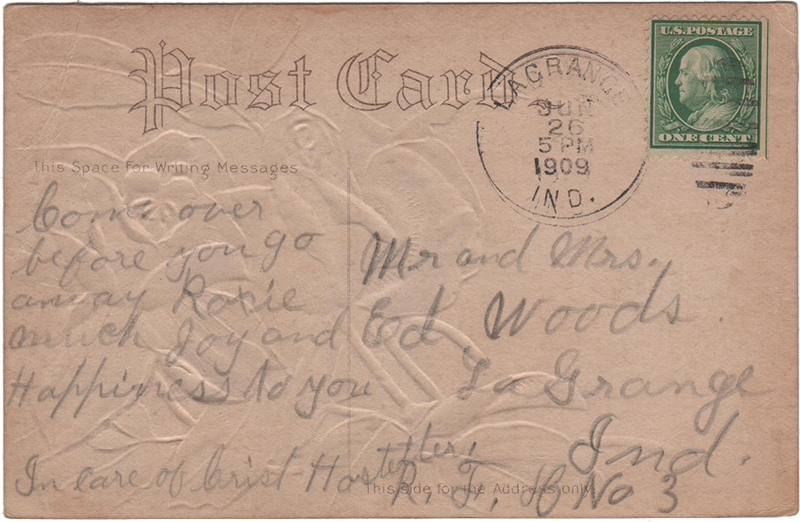 Post Card
LAGRANGE
JUN
26
5 PM
1909
IND.
U.S. POSTAGE
ONE CENT
This Space For Writing Messages
Come over
before you go
away Roxie
much Joy and
Happiness to you
In care of Crist Hostetler,
Mr and Mrs.
Ed Woods.
La Grange
Ind.
R. F. D No 3
This side for the Address only.